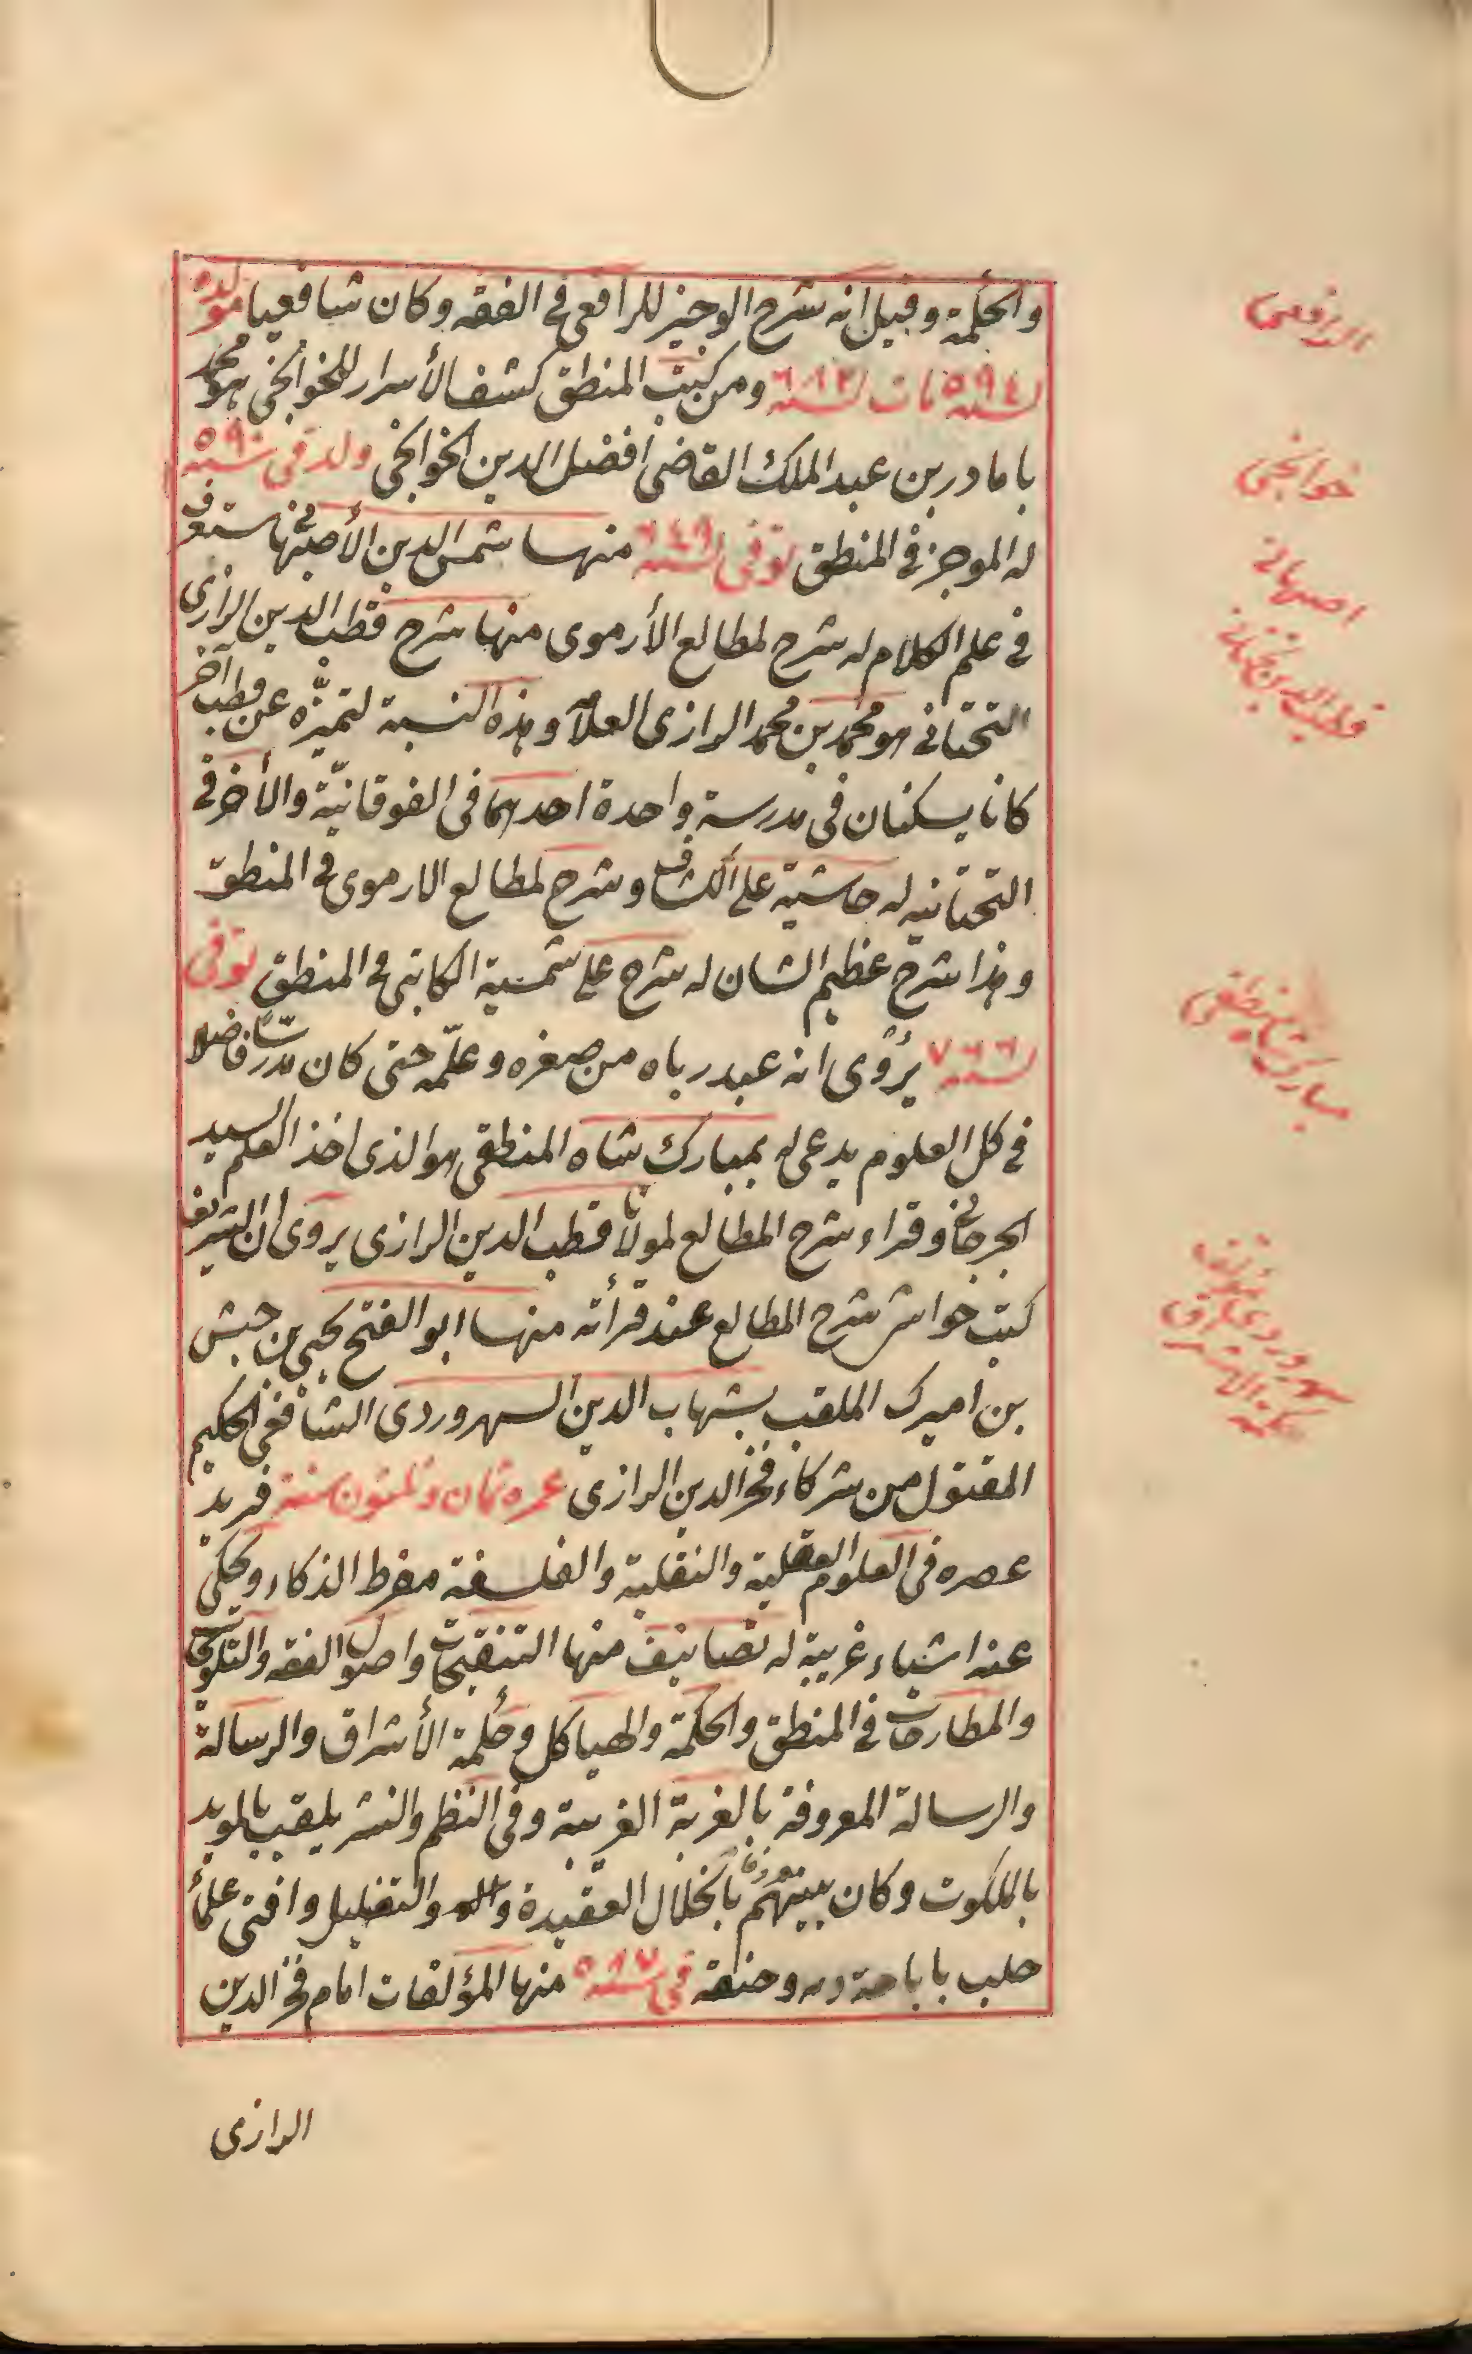 والحكمة وقيل انه شرح الوجيز للرافعى فى الفقه وكان شافعيا مولده
لسنه ٥٩٤ مات لسنه ٦٨٢ ومن كتب المنطق كشف الأسرار للخوانجى هو محمد
باماد ربن عبد الملك القاضى افضل الدين الخوانجى ولد فى سنه ٥٩٠
له الموجز فى المنطق توفى لسنه ٦٤٩ منها شمس الدين الأصبهانى
فى علم الكلام له شرح لمطالع الأرموى منها شرح قطب الدين الرازى
التحتانى هو محمد بن محمد الرازى العلا وهذه النسبة لتميزه عن قطب آخر
كانا يسكنان فى مدرسة واحدة احدهما فى الفوقانيّة والأخر فى
التحتانيه له حاشية على الكشاف وشرح لمطالع الارموى فى المنطق
وهذا شرح عظيم الشان له شرح على شمسية الكاتبى فى المنطق توفى
لسنه ٧٦٦ يروى انه عبد رباه من صغره وعلّمه حتى كان مدرسا فاضلا
فى كل العلوم يدعى له بمبارك شاه المنطقى هو الذى اخذ العلم السيد
الجرجانى وقراء شرح المطالع لمولانا قطب الدين الرازى يروى ان الشريف
كتب حواش شرح المطالع عند قرأته منها ابو الفتح يحيى بن حبش
بن اميرك الملقب بشهاب الدين السهروردى الشافعى الحكيم
المقتول من شركاء فخر الدين الرازى عمره ثمان وثلثون سنة فريد
عصره فى العلوم العقلية والنقلية والفلسفة مفرط الذكاء ويحكى
عنه اشياء غريبة له تصانيف منها التنقيحات واصول الفقه والتلويحات
والمطارحات فى المنطق والحكمة والهياكل وحكمة الأشراق والرسالة
والرسالة المعروفة بالغربة الغريبة وفى النظم والنثر يلقب بالمويد
بالملكوت وكان بينهم بانخلال العقيدة والتضليل وافتى علماء
حلب باباحة دمه وخنقه فى سنه ٥٨٧ منها المؤلفات امام فخر الدين
الرازى
الرافعى
خوانجى
اصبهانى
قطب الدين تحتانى
مبارك شاه منطقى